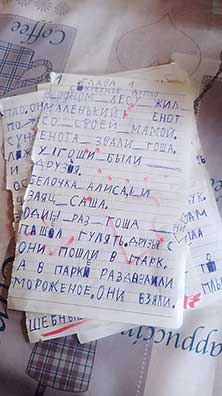 Coffee
1 ГЛАВА 1
ОДНОМ ЛЕСУ ЖИЛ
МАЛЕНЬКИЙ ЕНОТ
СО СВОЕЙ МАМОЙ.
ЕНОТА ЗВАЛИ ГОША.
У ГОШИ БЫЛИ
ДРУЗЯ.
БЕЛОЧКА АЛИСА, И
ЗАЯЦ САША.
ОДИН РАЗ ГОША
ПАШОЛ ГУЛЯТ, ДРУЗЯ С
ОНИ ПОШЛИ В ПАРК.
А В ПАРКИ РАЗДАВАЛИ
МОРОЖЕНОЕ. ОНИ ВЗЯЛИ.
ШЕБНЫ
appuccin